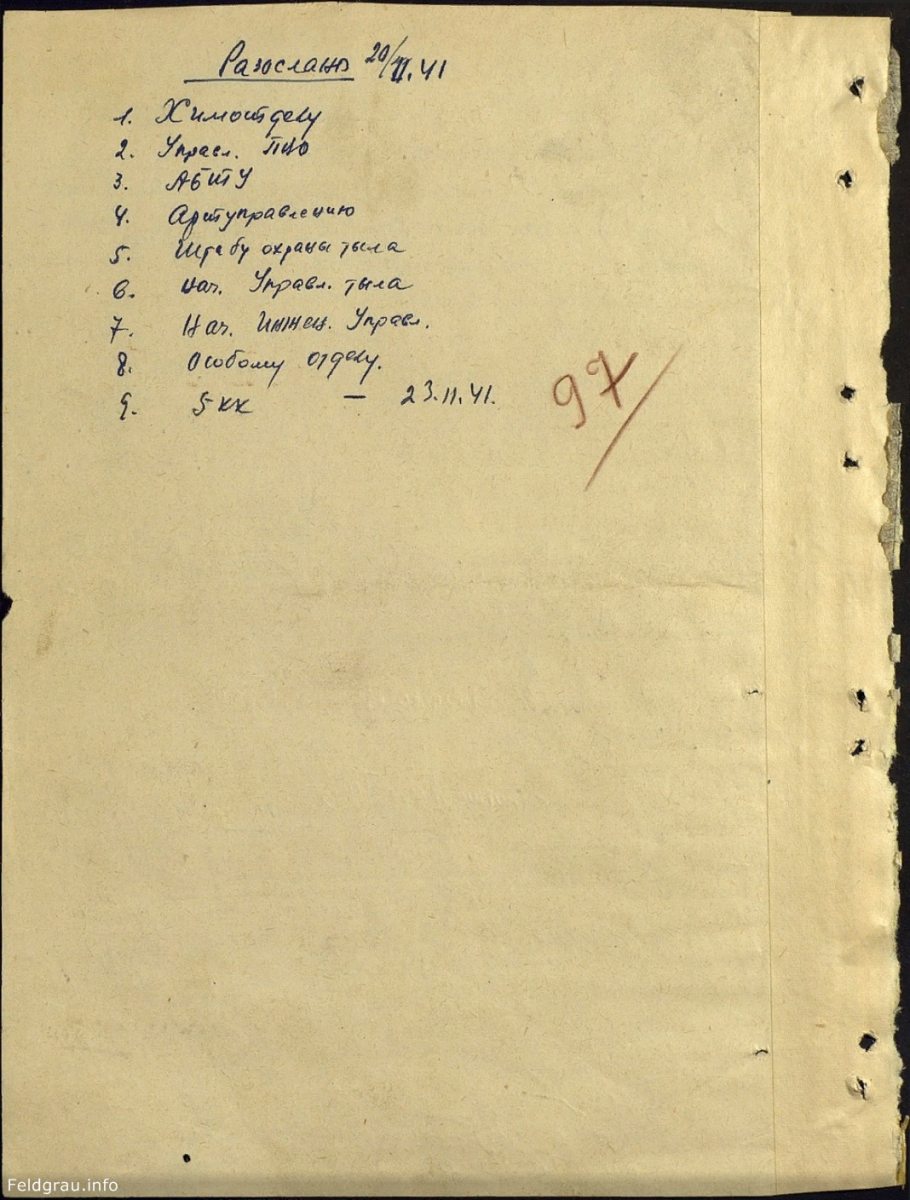 Разослано 20/II.41
1. Химотделу
2. Управл. ПВО
3. АБТУ
4. Артуправлению
5. Штабу охраны тыла
6. Нач. Управл. тыла
7. Нач. Инжен. Управл.
8. Особому отделу.
9. 5 кк — 23.11.41.
97/
Feldgrau.info